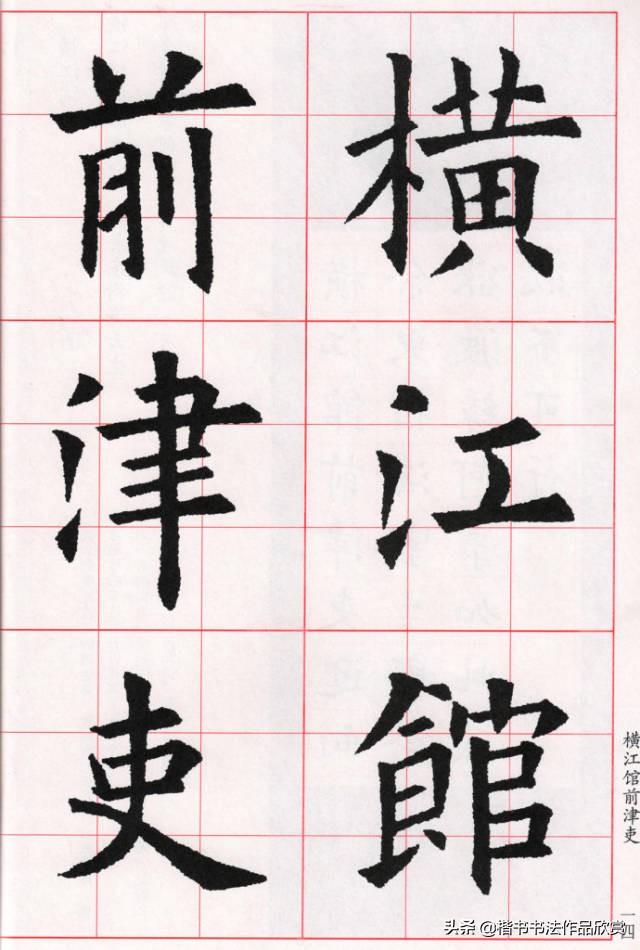 橫江館
前津吏
横江馆前津吏
一四
头条 @楷书书法作品欣赏